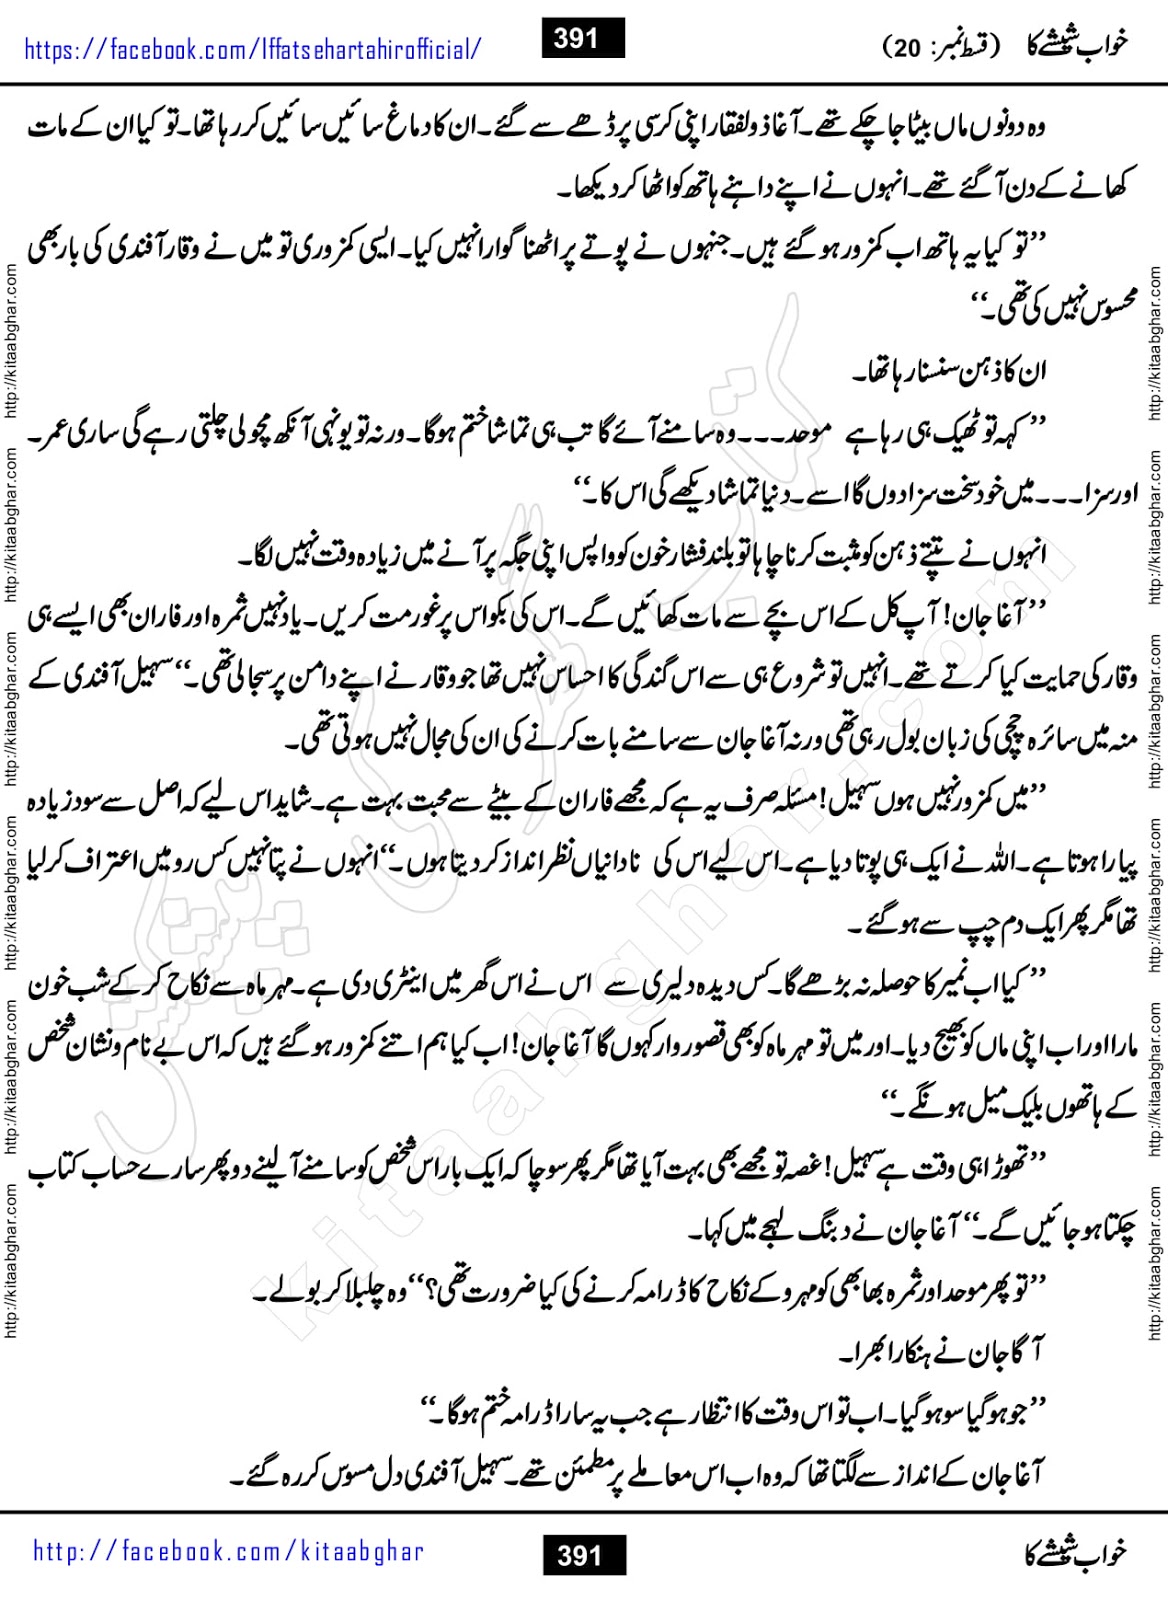 https://facebook.com/IffatsehartahirofficiaI/
391
خواب شیشے کا (قسط نمبر: 20)
وہ دونوں ماں بیٹا جا چکے تھے۔ آغا ذولفقار اپنی کرسی پر ڈھے سے گئے۔ ان کا دماغ سائیں سائیں کر رہا تھا۔ تو کیا ان کے مات
کھانے کے دن آ گئے تھے۔ انہوں نے اپنے داہنے ہاتھ کو اٹھا کر دیکھا۔
’’تو کیا یہ ہاتھ اب کمزور ہو گئے ہیں۔ جنہوں نے پوتے پر اٹھنا گوارا نہیں کیا۔ ایسی کمزوری تو میں نے وقار آفندی کی بار بھی
محسوس نہیں کی تھی۔‘‘
ان کا ذہن سنسنا رہا تھا۔
’’کہہ تو ٹھیک ہی رہا ہے موحد۔۔۔ وہ سامنے آئے گا تب ہی تماشا ختم ہوگا۔ ورنہ تو یونہی آنکھ مچولی چلتی رہے گی ساری عمر۔
اور سزا۔۔۔ میں خود سخت سزا دوں گا اسے۔ دنیا تماشا دیکھے گی اس کا۔‘‘
انہوں نے تپتے ذہن کو مثبت کرنا چاہا تو بلند فشار خون کو واپس اپنی جگہ پر آنے میں زیادہ وقت نہیں لگا۔
’’آغا جان! آپ کل کے اس بچے سے مات کھائیں گے۔ اس کی بکواس پر غور مت کریں۔ یاد نہیں ثمرہ اور فاران بھی ایسے ہی
وقار کی حمایت کیا کرتے تھے۔ انہیں تو شروع ہی سے اس گندگی کا احساس نہیں تھا جو وقار نے اپنے دامن پر سجالی تھی۔‘‘ سہیل آفندی کے
منہ میں سائرہ چچی کی زبان بول رہی تھی ورنہ آغا جان سے سامنے بات کرنے کی ان کی مجال نہیں ہوتی تھی۔
’’میں کمزور نہیں ہوں سہیل! مسئلہ صرف یہ ہے کہ مجھے فاران کے بیٹے سے محبت بہت ہے۔ شاید اس لیے کہ اصل سے سود زیادہ
پیارا ہوتا ہے۔ اللہ نے ایک ہی پوتا دیا ہے۔ اس لیے اس کی نادانیاں نظر انداز کر دیتا ہوں۔‘‘ انہوں نے پتا نہیں کس رو میں اعتراف کر لیا
تھا مگر پھر ایک دم چپ سے ہو گئے۔
’’کیا اب نمیر کا حوصلہ نہ بڑھے گا۔ کس دیدہ دلیری سے اس نے اس گھر میں اینٹری دی ہے۔ مہرماہ سے نکاح کر کے شب خون
مارا اور اب اپنی ماں کو بھیج دیا۔ اور میں تو مہرماہ کو بھی قصور وار کہوں گا آغا جان! اب کیا ہم اتنے کمزور ہو گئے ہیں کہ اس بے نام و نشان شخص
کے ہاتھوں بلیک میل ہونگے۔‘‘
’’تھوڑا ہی وقت ہے سہیل! غصہ تو مجھے بھی بہت آیا تھا مگر پھر سوچا کہ ایک بار اس شخص کو سامنے آ لینے دو پھر سارے حساب کتاب
چکتا ہو جائیں گے۔‘‘ آغا جان نے دبنگ لہجے میں کہا۔
’’تو پھر موحد اور ثمرہ بھابھی کو مہرو کے نکاح کا ڈرامہ کرنے کی کیا ضرورت تھی؟‘‘ وہ چلبلا کر بولے۔
آگا جان نے ہنکارا بھرا۔
’’جو ہو گیا سو ہو گیا۔ اب تو اس وقت کا انتظار ہے جب یہ سارا ڈرامہ ختم ہوگا۔‘‘
آغا جان کے انداز سے لگتا تھا کہ وہ اب اس معاملے پر مطمئن تھے۔ سہیل آفندی دل مسوس کر رہ گئے۔
http://kitaabghar.com http://kitaabghar.com http://kitaabghar.com http://kitaabghar.com http://kitaabghar.com http://kitaabghar.com
http://kitaabghar.com http://kitaabghar.com http://kitaabghar.com http://kitaabghar.com http://kitaabghar.com http://kitaabghar.com
کتاب گھر کی پیشکش
kitaabghar.com
http://facebook.com/kitaabghar
391
خواب شیشے کا